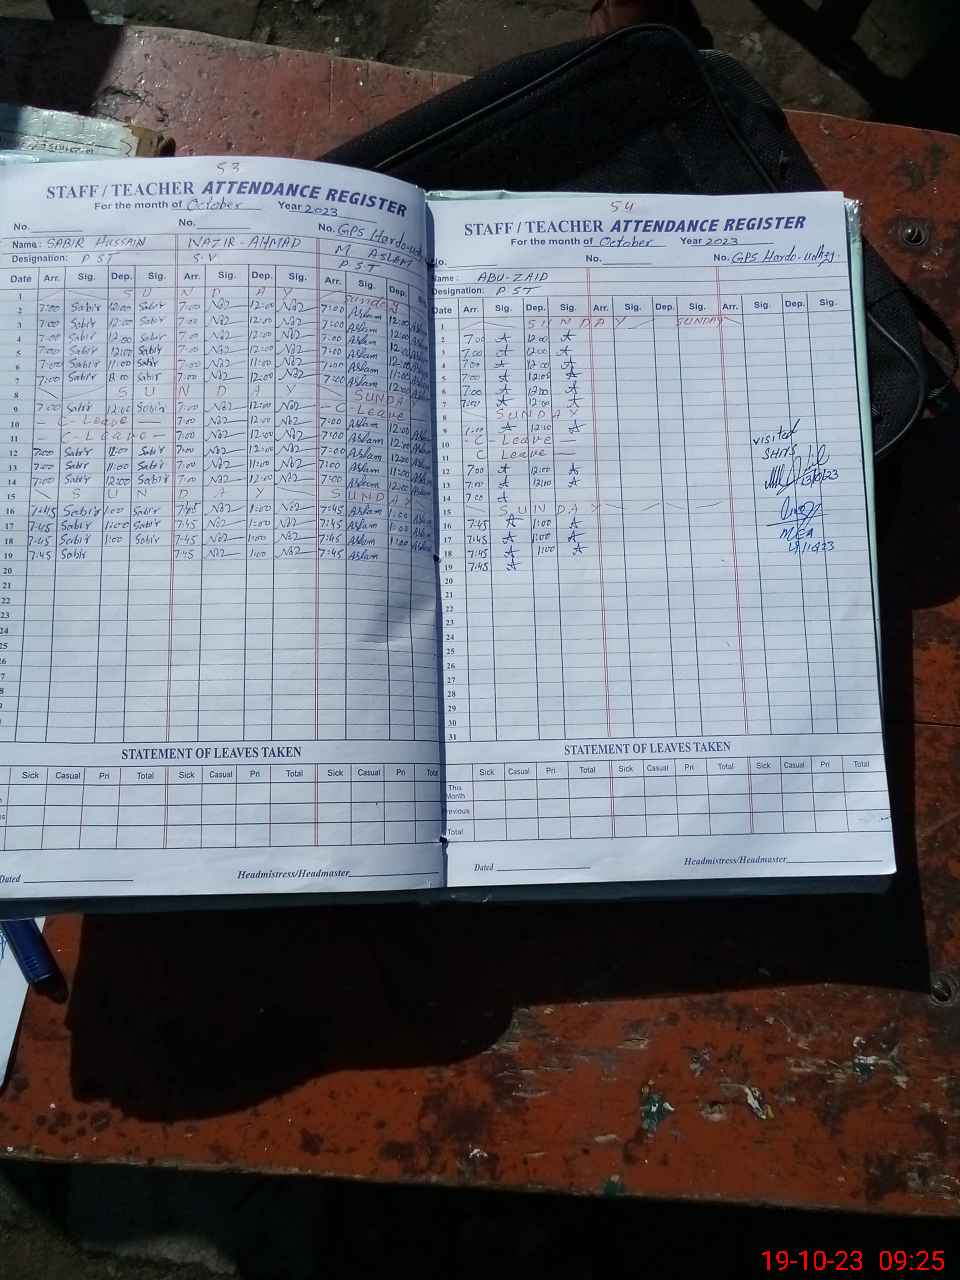 53
STAFF / TEACHER ATTENDANCE REGISTER
For the month of October Year 2023
No. No. No. GPS Hardo-ud
Name: SABIR HUSSAIN NAZIR-AHMAD M ASLEM
Designation: PST S.V PST
Date Arr. Sig. Dep. Sig. Arr. Sig. Dep. Sig. Arr. Sig. Dep.
1 S U N D A Y Sunday
2 7:00 Sabir 12:00 Sabir 7:00 12:00 7:00 Aslam 12:00 Aslam
3 7:00 Sabir 12:00 Sabir 7:00 12:00 7:00 Aslam 12:00 Aslam
4 7:00 Sabir 12:00 Sabir 7:00 12:00 7:00 Aslam 12:00 Aslam
5 7:00 Sabir 12:00 Sabir 7:00 12:00 7:00 Aslam 12:00 Aslam
6 7:00 Sabir 11:00 Sabir 7:00 11:00 7:00 Aslam 11:00 Aslam
7 7:00 Sabir 12:00 Sabir 7:00 12:00 7:00 Aslam 12:00 Aslam
8 S U N D A Y SUNDA
9 7:00 Sabir 12:00 Sabir 7:00 12:00 - C-Leave
10 - C-Leave - 7:00 12:00 7:00 Aslam 12:00 Aslam
11 - C-Leave - 7:00 12:00 7:00 Aslam 12:00 Aslam
12 7:00 Sabir 12:00 Sabir 7:00 12:00 7:00 Aslam 12:00 Aslam
13 7:00 Sabir 11:00 Sabir 7:00 11:00 7:00 Aslam 11:00 Aslam
14 7:00 Sabir 12:00 Sabir 7:00 12:00 7:00 Aslam 12:00 Aslam
15 S U N D A Y SUNDAY
16 7:45 Sabir 1:00 Sabir 7:45 1:00 7:45 Aslam 1:00 Aslam
17 7:45 Sabir 1:00 Sabir 7:45 1:00 7:45 Aslam 1:00 Aslam
18 7:45 Sabir 1:00 Sabir 7:45 1:00 7:45 Aslam 1:00 Aslam
19 7:45 Sabir 7:45 1:00 7:45 Aslam
20
21
22
23
24
25
26
27
28
STATEMENT OF LEAVES TAKEN
Sick Casual Pri Total Sick Casual Pri Total Sick Casual Pri Total
Dated Headmistress/Headmaster
54
STAFF / TEACHER ATTENDANCE REGISTER
For the month of October Year 2023
No. No. No. GPS Hardo-udhzy.
Name: ABU-ZAID
Designation: PST
Date Arr. Sig. Dep. Sig. Arr. Sig. Dep. Sig. Arr. Sig. Dep. Sig.
1 S U N D A Y SUNDAY
2 7:00 12:00
3 7:00 12:00
4 7:00 12:00
5 7:00 12:00
6 7:00 12:00
7 7:00 12:00
8 SUNDAY
9 12:00
10 - C-Leave -
11 C Leave -
12 7:00 12:00
13 7:00 12:00
14 7:00
15 S U N D A Y
16 7:45 1:00
17 7:45 1:00
18 7:45 1:00
19 7:45
20
21
22
23
24
25
26
27
28
29
30
31
visited
MEA
19/10/23
STATEMENT OF LEAVES TAKEN
Sick Casual Pri Total Sick Casual Pri Total Sick Casual Pri Total
This Month
Previous
Total
Dated Headmistress/Headmaster
19-10-23 09:25